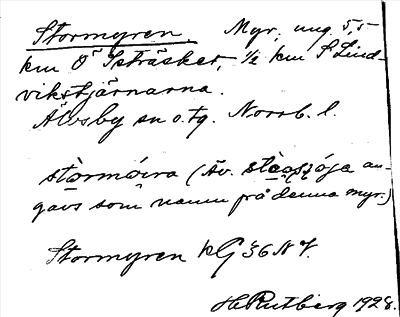 Stormyren. Myr, ung. 5,5
km Ö Isträsket, ½ km S Lind-
vikstjärnarna.
Älvsby sn o. tg. Norrb. l.
stormoira (Äv. an-
gavs som namn på denna myr.)
Stormyren kG 36 N 7.
H Rutberg 1928.